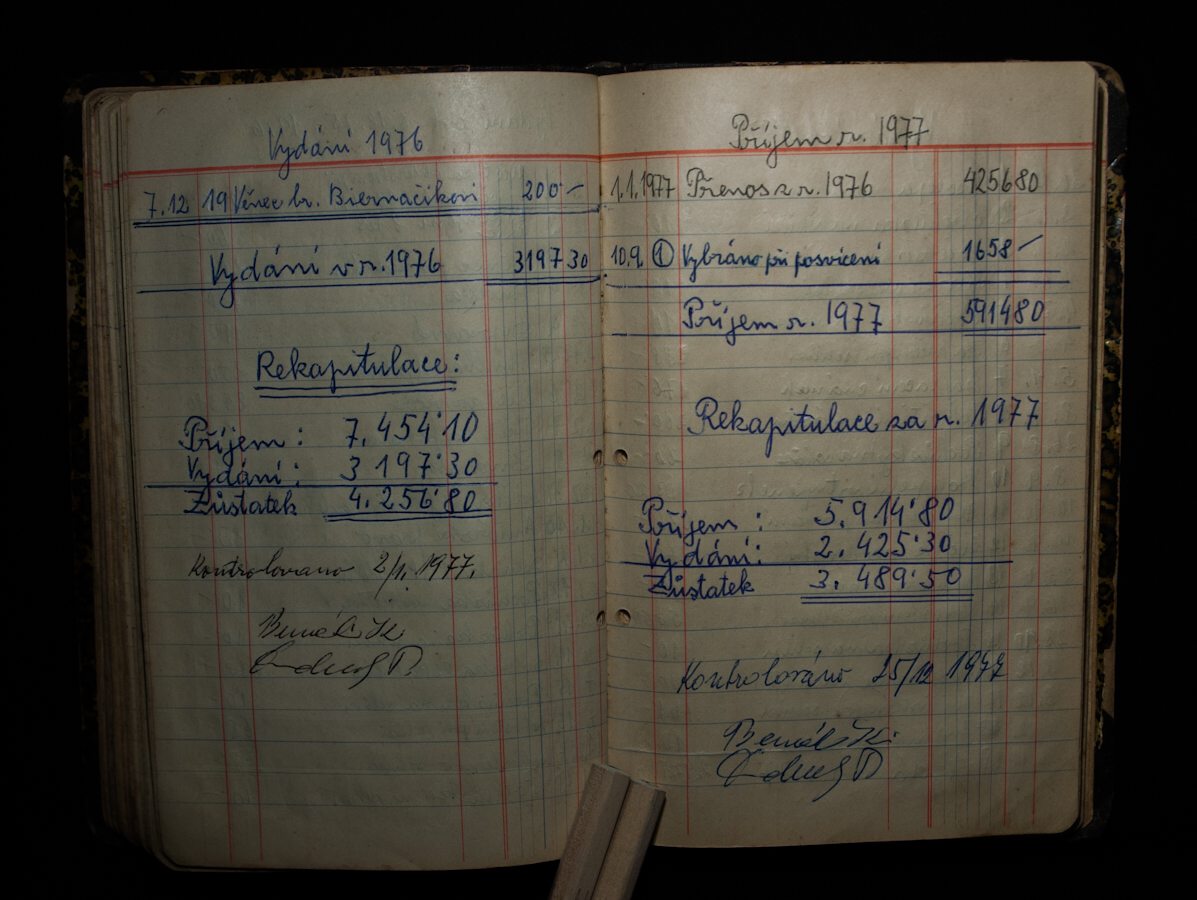 Vydání 1976
7.12 19 Věnec br. Biernačíkovi 200 –
Vydání v r. 1976 3197 30
Rekapitulace:
Příjem : 7.454·10
Vydání : 3 197·30
Zůstatek 4.256·80
Kontrolovano 2/1. 1977.
Příjem r. 1977
1.1.1977 Přenos z r. 1976 4256 80
10.9. 1 Vybráno při posvícení 1658 –
Příjem r. 1977 5914 80
Rekapitulace za r. 1977
Příjem : 5.914·80
Vydání : 2.425·30
Zůstatek 3.489·50
Kontrolováno 25/12 1977